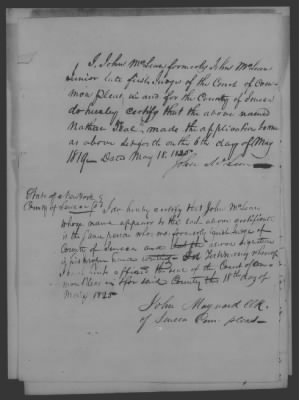 I, John McLean formerly John McLean
Junior late first Judge of the Court of Com
mon Pleas in and for the County of Seneca
do hereby certify that the above named
Nathan Teal made the application
as above set forth on the 6th day of May
1819 Dated May 18. 1825
John McLean
State of New York
County of Seneca SS I do hereby certify that John McLean
whose name appears to the above certificate
is the same person who was formerly first Judge of
County of Seneca and the above signature
is his proper hand writing In testimony whereof
I have affixed the seal of the Court of Com
mon Pleas for said County this 18th day of
May 1825
John Maynard Clk
of Seneca Com. pleas